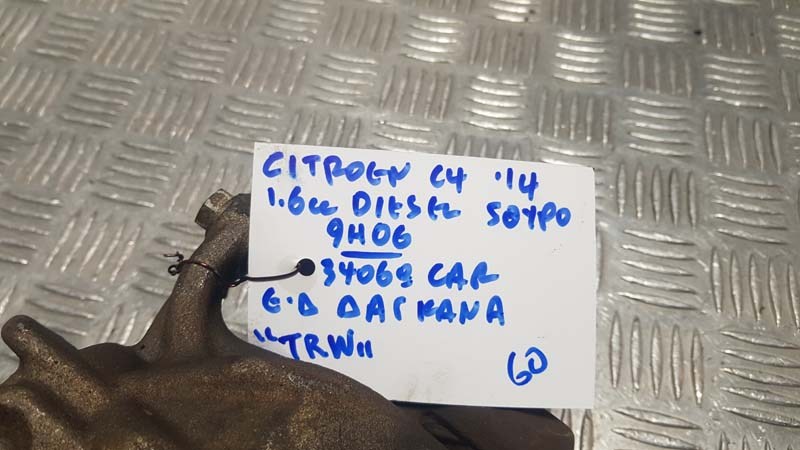 CITROEN C4 '14
1.6cc DIESEL 5ΘΥΡΟ
9H06
34069 CAR
Ε.Δ ΔΑΓΚΑΝΑ
"TRW"
60